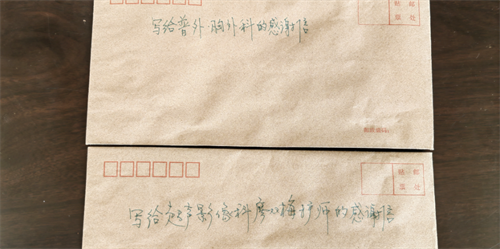 贴邮
票处
写给普外·胸外科的感谢信
贴邮
票处
写给超声影像科廖小梅护师的感谢信